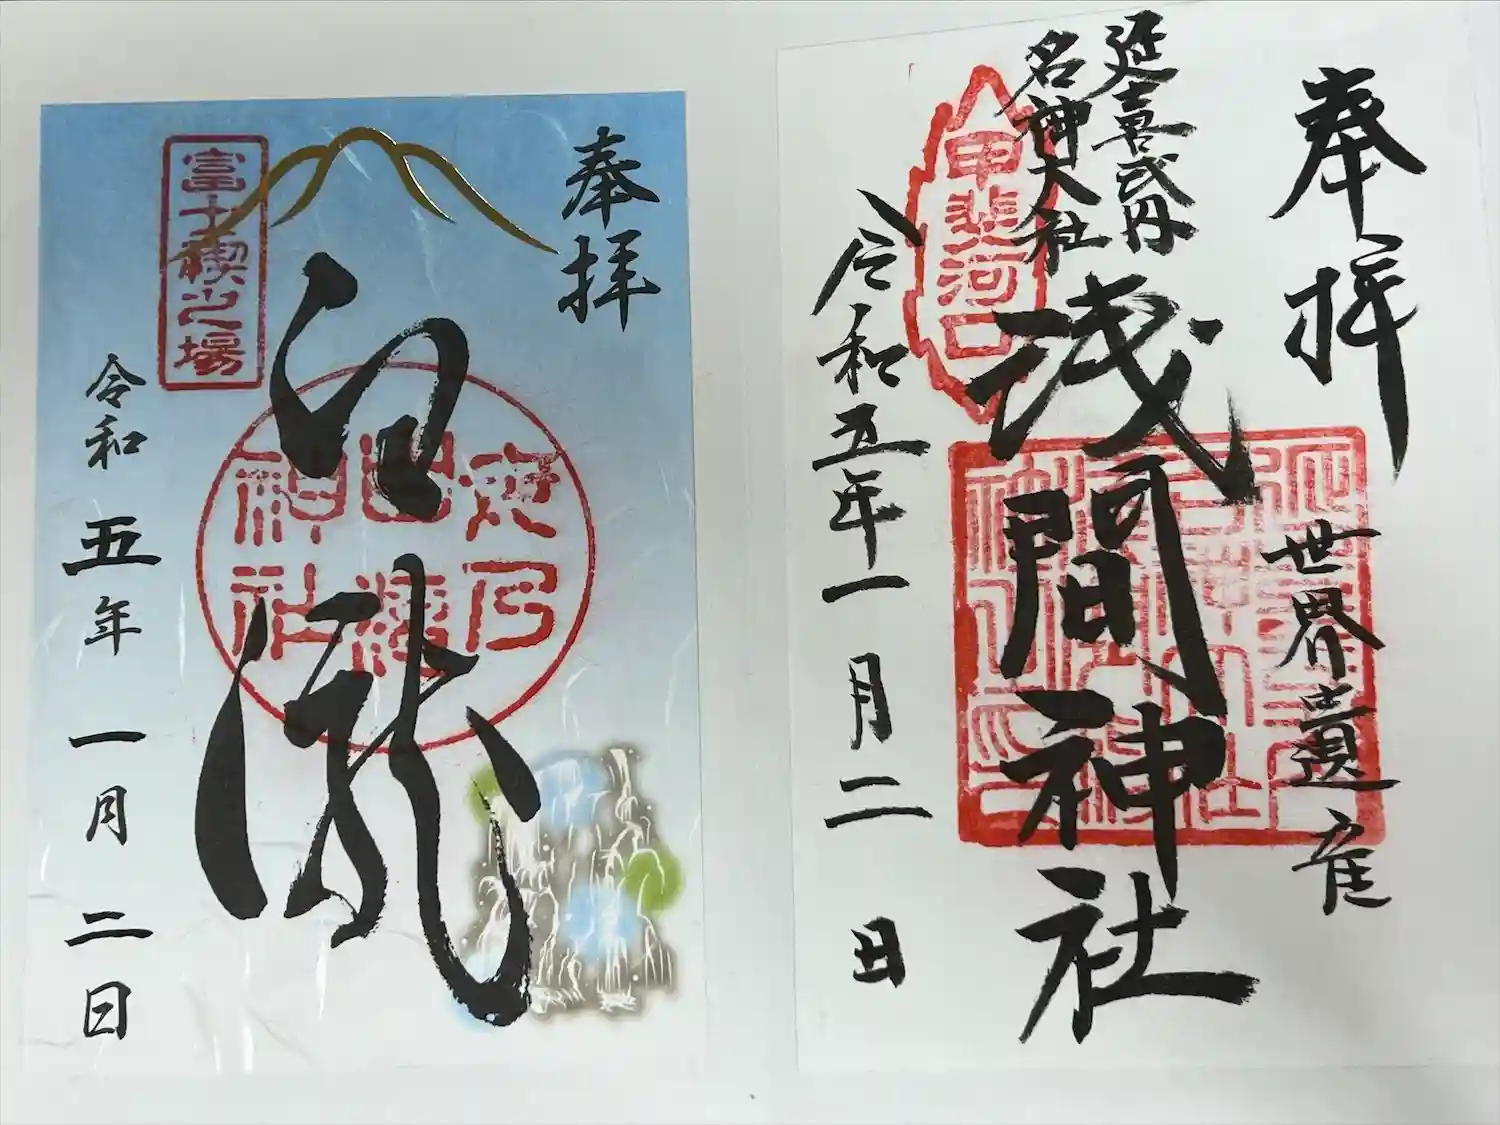 奉拝
世界遺産
延喜式内
名神大社
浅間神社
甲斐河口
令和五年一月二日
奉拝
白瀧
神社
富士禊之場
令和五年一月二日